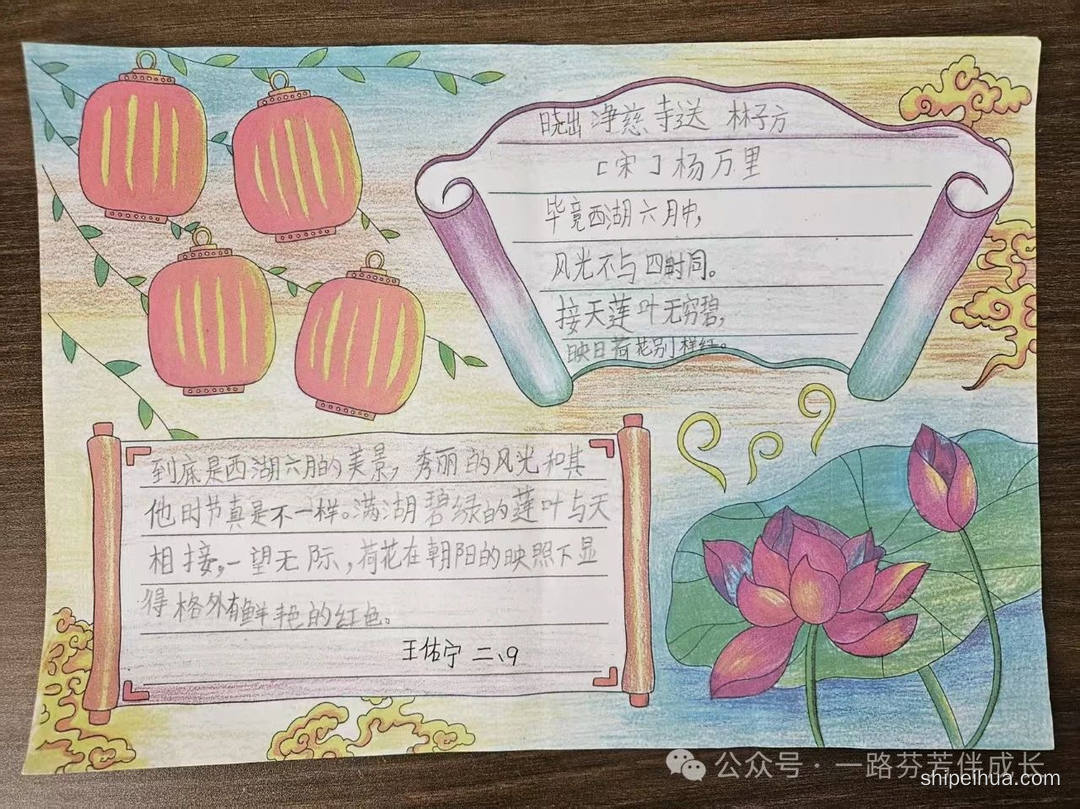 晓出净慈寺送 林子方
[宋]杨万里
毕竟西湖六月中,
风光不与四时同。
接天莲叶无穷碧,
映日荷花别样红。
到底是西湖六月的美景,秀丽的风光和其
他时节真是不一样。满湖碧绿的莲叶与天
相接,一望无际,荷花在朝阳的映照下显
得格外有鲜艳的红色。
王佑宁 二、9
公众号·一路芬芳伴成长
shipeihua.com